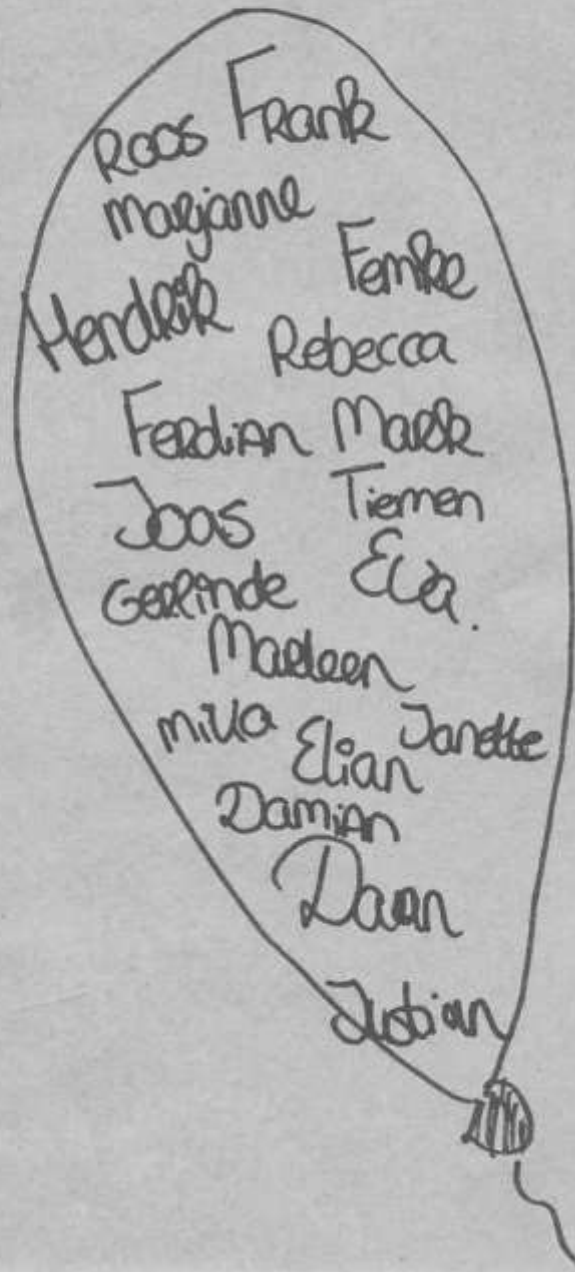 Roos Frank
Marjanne
Femke
Hendrik
Rebecca
Ferdian Mark
Joas Tiemen
Gerlinde Eva.
Marleen
Milla Janette
Elian
Damian
Daan